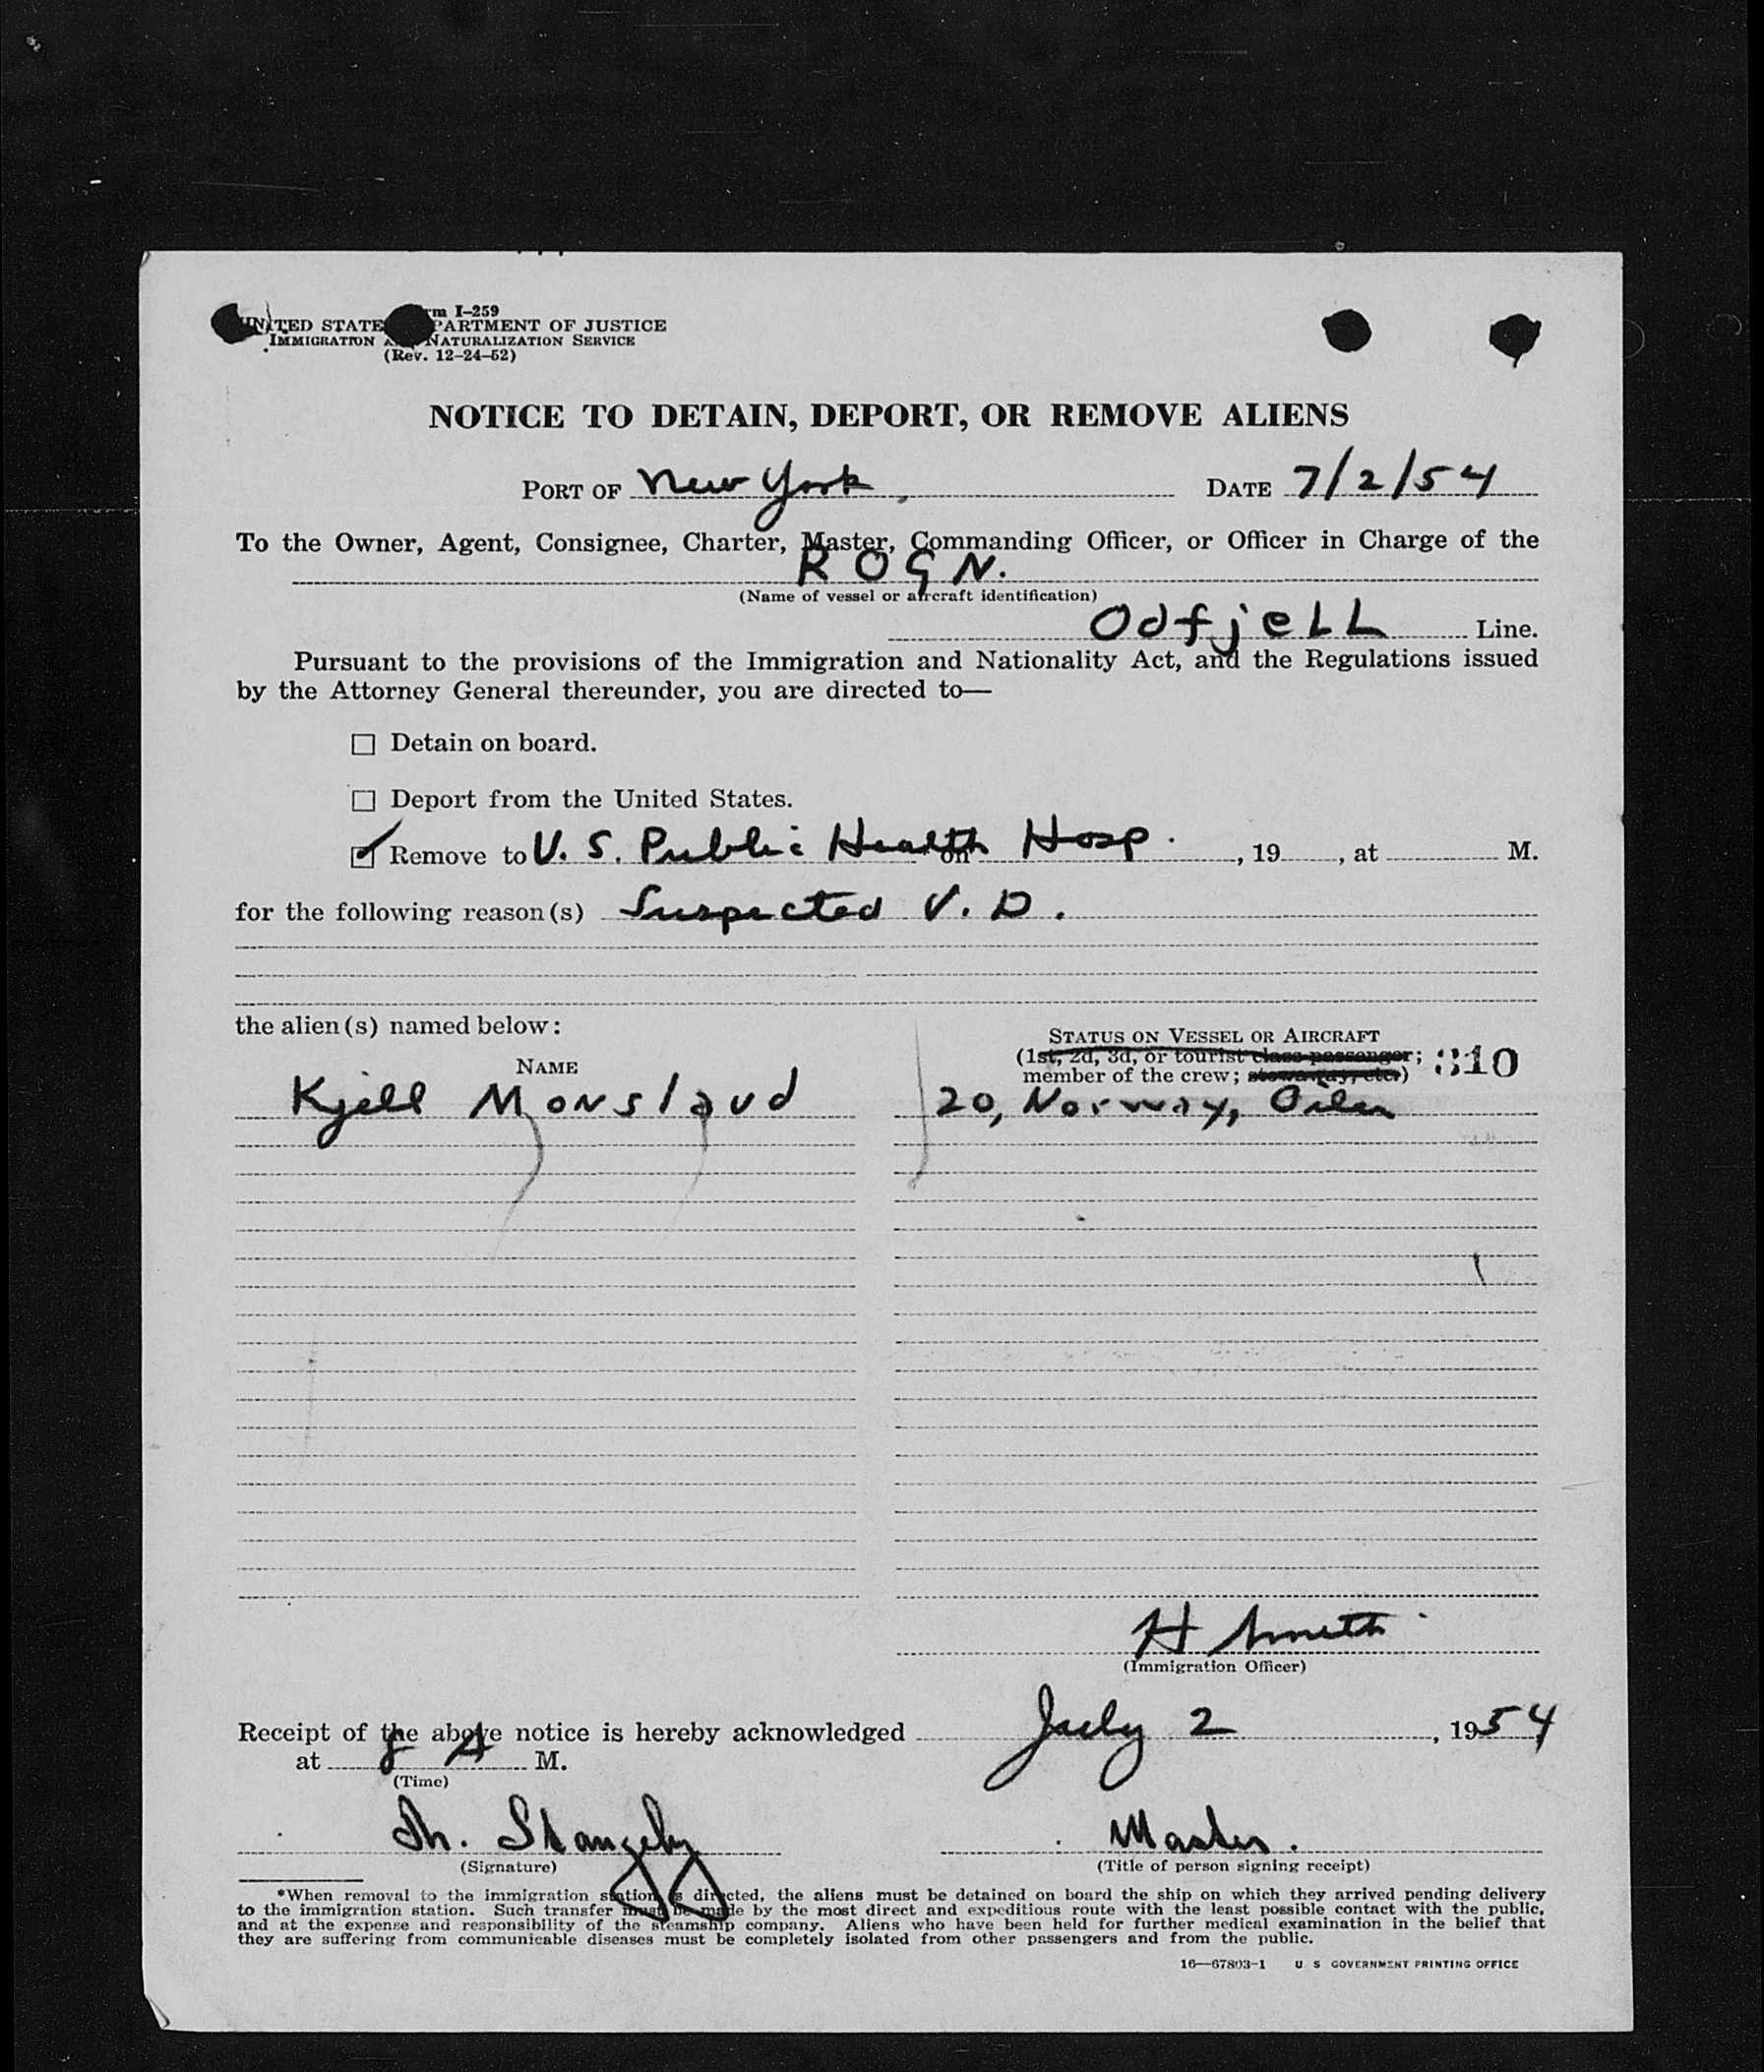 Form I-259
UNITED STATES DEPARTMENT OF JUSTICE
IMMIGRATION AND NATURALIZATION SERVICE
(Rev. 12-24-52)
NOTICE TO DETAIN, DEPORT, OR REMOVE ALIENS
PORT OF New York DATE 7/2/54
To the Owner, Agent, Consignee, Charter, Master, Commanding Officer, or Officer in Charge of the
ROGN.
(Name of vessel or aircraft identification)
Odfjell Line.
Pursuant to the provisions of the Immigration and Nationality Act, and the Regulations issued
by the Attorney General thereunder, you are directed to—
☐ Detain on board.
☐ Deport from the United States.
☑ Remove to U. S. Public Health on Hosp. , 19 , at M.
for the following reason(s) Suspected V. D.
the alien(s) named below:
STATUS ON VESSEL OR AIRCRAFT
(1st, 2d, 3d, or tourist class passenger; 310
NAME
member of the crew; stowaway, etc.)
Kjell Monslaud 20, Norway, Oiler
H Smith
(Immigration Officer)
Receipt of the above notice is hereby acknowledged July 2, 1954
at 8 A M.
(Time)
Th. Stangeby Master.
(Signature) (Title of person signing receipt)
*When removal to the immigration station is directed, the aliens must be detained on board the ship on which they arrived pending delivery
to the immigration station. Such transfer must be made by the most direct and expeditious route with the least possible contact with the public,
and at the expense and responsibility of the steamship company. Aliens who have been held for further medical examination in the belief that
they are suffering from communicable diseases must be completely isolated from other passengers and from the public.
16—67803-1 U S GOVERNMENT PRINTING OFFICE